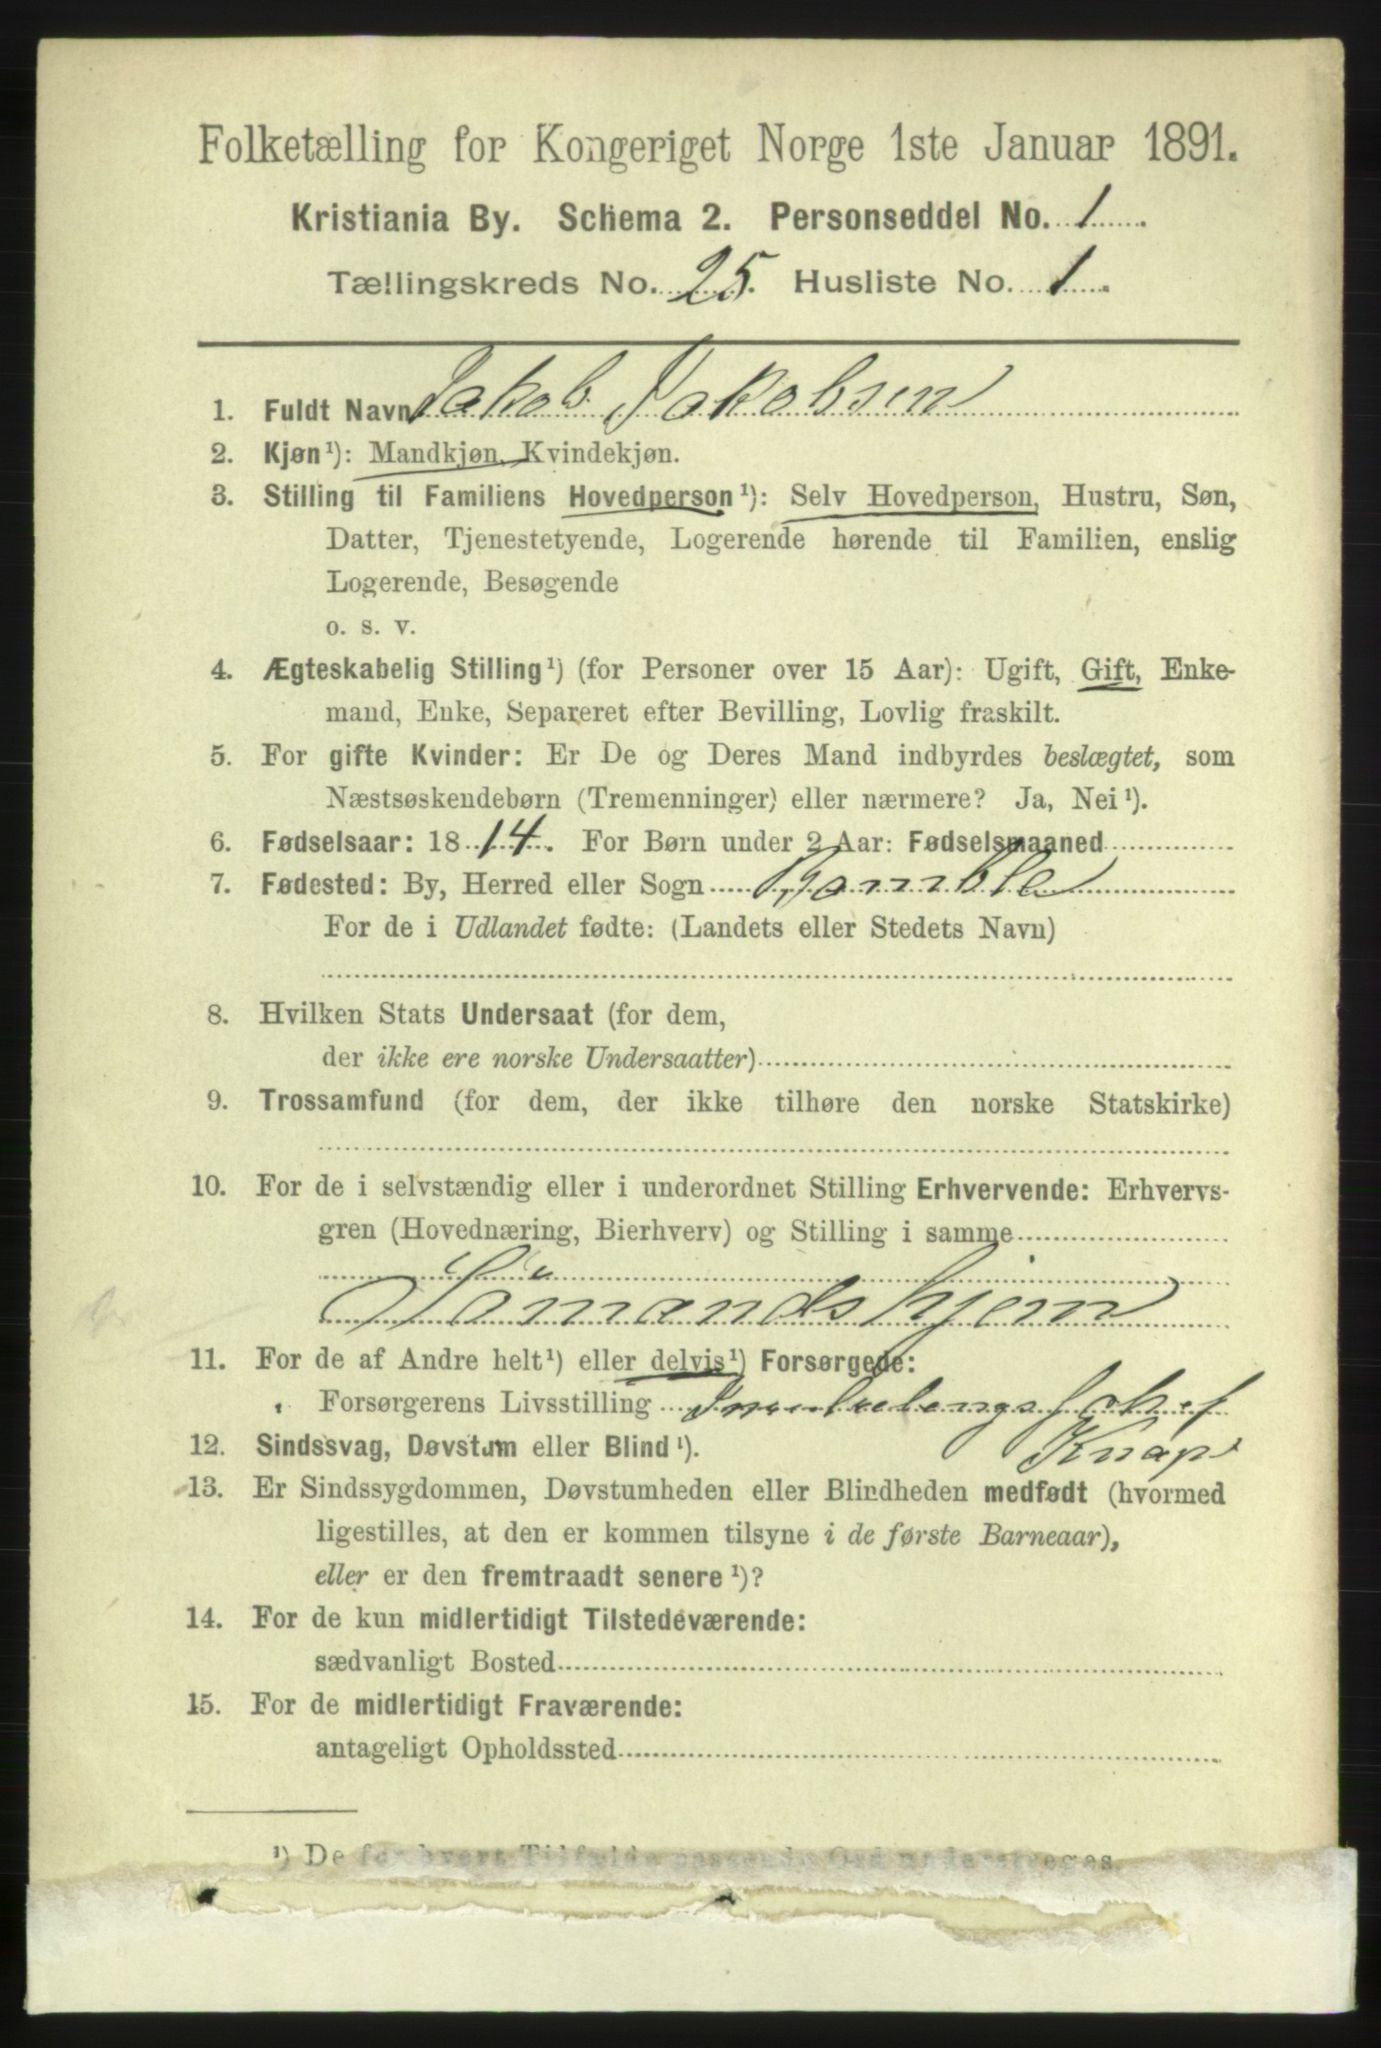 Folketælling for Kongeriget Norge 1ste Januar 1891.
Kristiania By. Schema 2. Personseddel No. 1
Tællingskreds No. 25. Husliste No. 1.
1. Fuldt Navn Jakob Jakobsen
2. Kjøn¹): Mandkjøn, Kvindekjøn.
3. Stilling til Familiens Hovedperson¹): Selv Hovedperson, Hustru, Søn,
Datter, Tjenestetyende, Logerende hørende til Familien, enslig
Logerende, Besøgende
o. s. v.
4. Ægteskabelig Stilling¹) (for Personer over 15 Aar): Ugift, Gift, Enke-
mand, Enke, Separeret efter Bevilling, Lovlig fraskilt.
5. For gifte Kvinder: Er De og Deres Mand indbyrdes beslægtet, som
Næstsøskendebørn (Tremenninger) eller nærmere? Ja, Nei¹).
6. Fødselsaar: 1814. For Børn under 2 Aar: Fødselsmaaned
7. Fødested: By, Herred eller Sogn Bamble
For de i Udlandet fødte: (Landets eller Stedets Navn)
8. Hvilken Stats Undersaat (for dem,
der ikke ere norske Undersaatter)
9. Trossamfund (for dem, der ikke tilhøre den norske Statskirke)
10. For de i selvstændig eller i underordnet Stilling Erhvervende: Erhvervs-
gren (Hovednæring, Bierhverv) og Stilling i samme
Sömandshjem
11. For de af Andre helt¹) eller delvis¹) Forsørgede:
Forsørgerens Livsstilling
Knap
12. Sindssvag, Døvstum eller Blind¹).
13. Er Sindssygdommen, Døvstumheden eller Blindheden medfødt (hvormed
ligestilles, at den er kommen tilsyne i de første Barneaar),
eller er den fremtraadt senere¹)?
14. For de kun midlertidigt Tilstedeværende:
sædvanligt Bosted
15. For de midlertidigt Fraværende:
antageligt Opholdssted
¹) De for hvert Tilfælde passende Ord understreges.